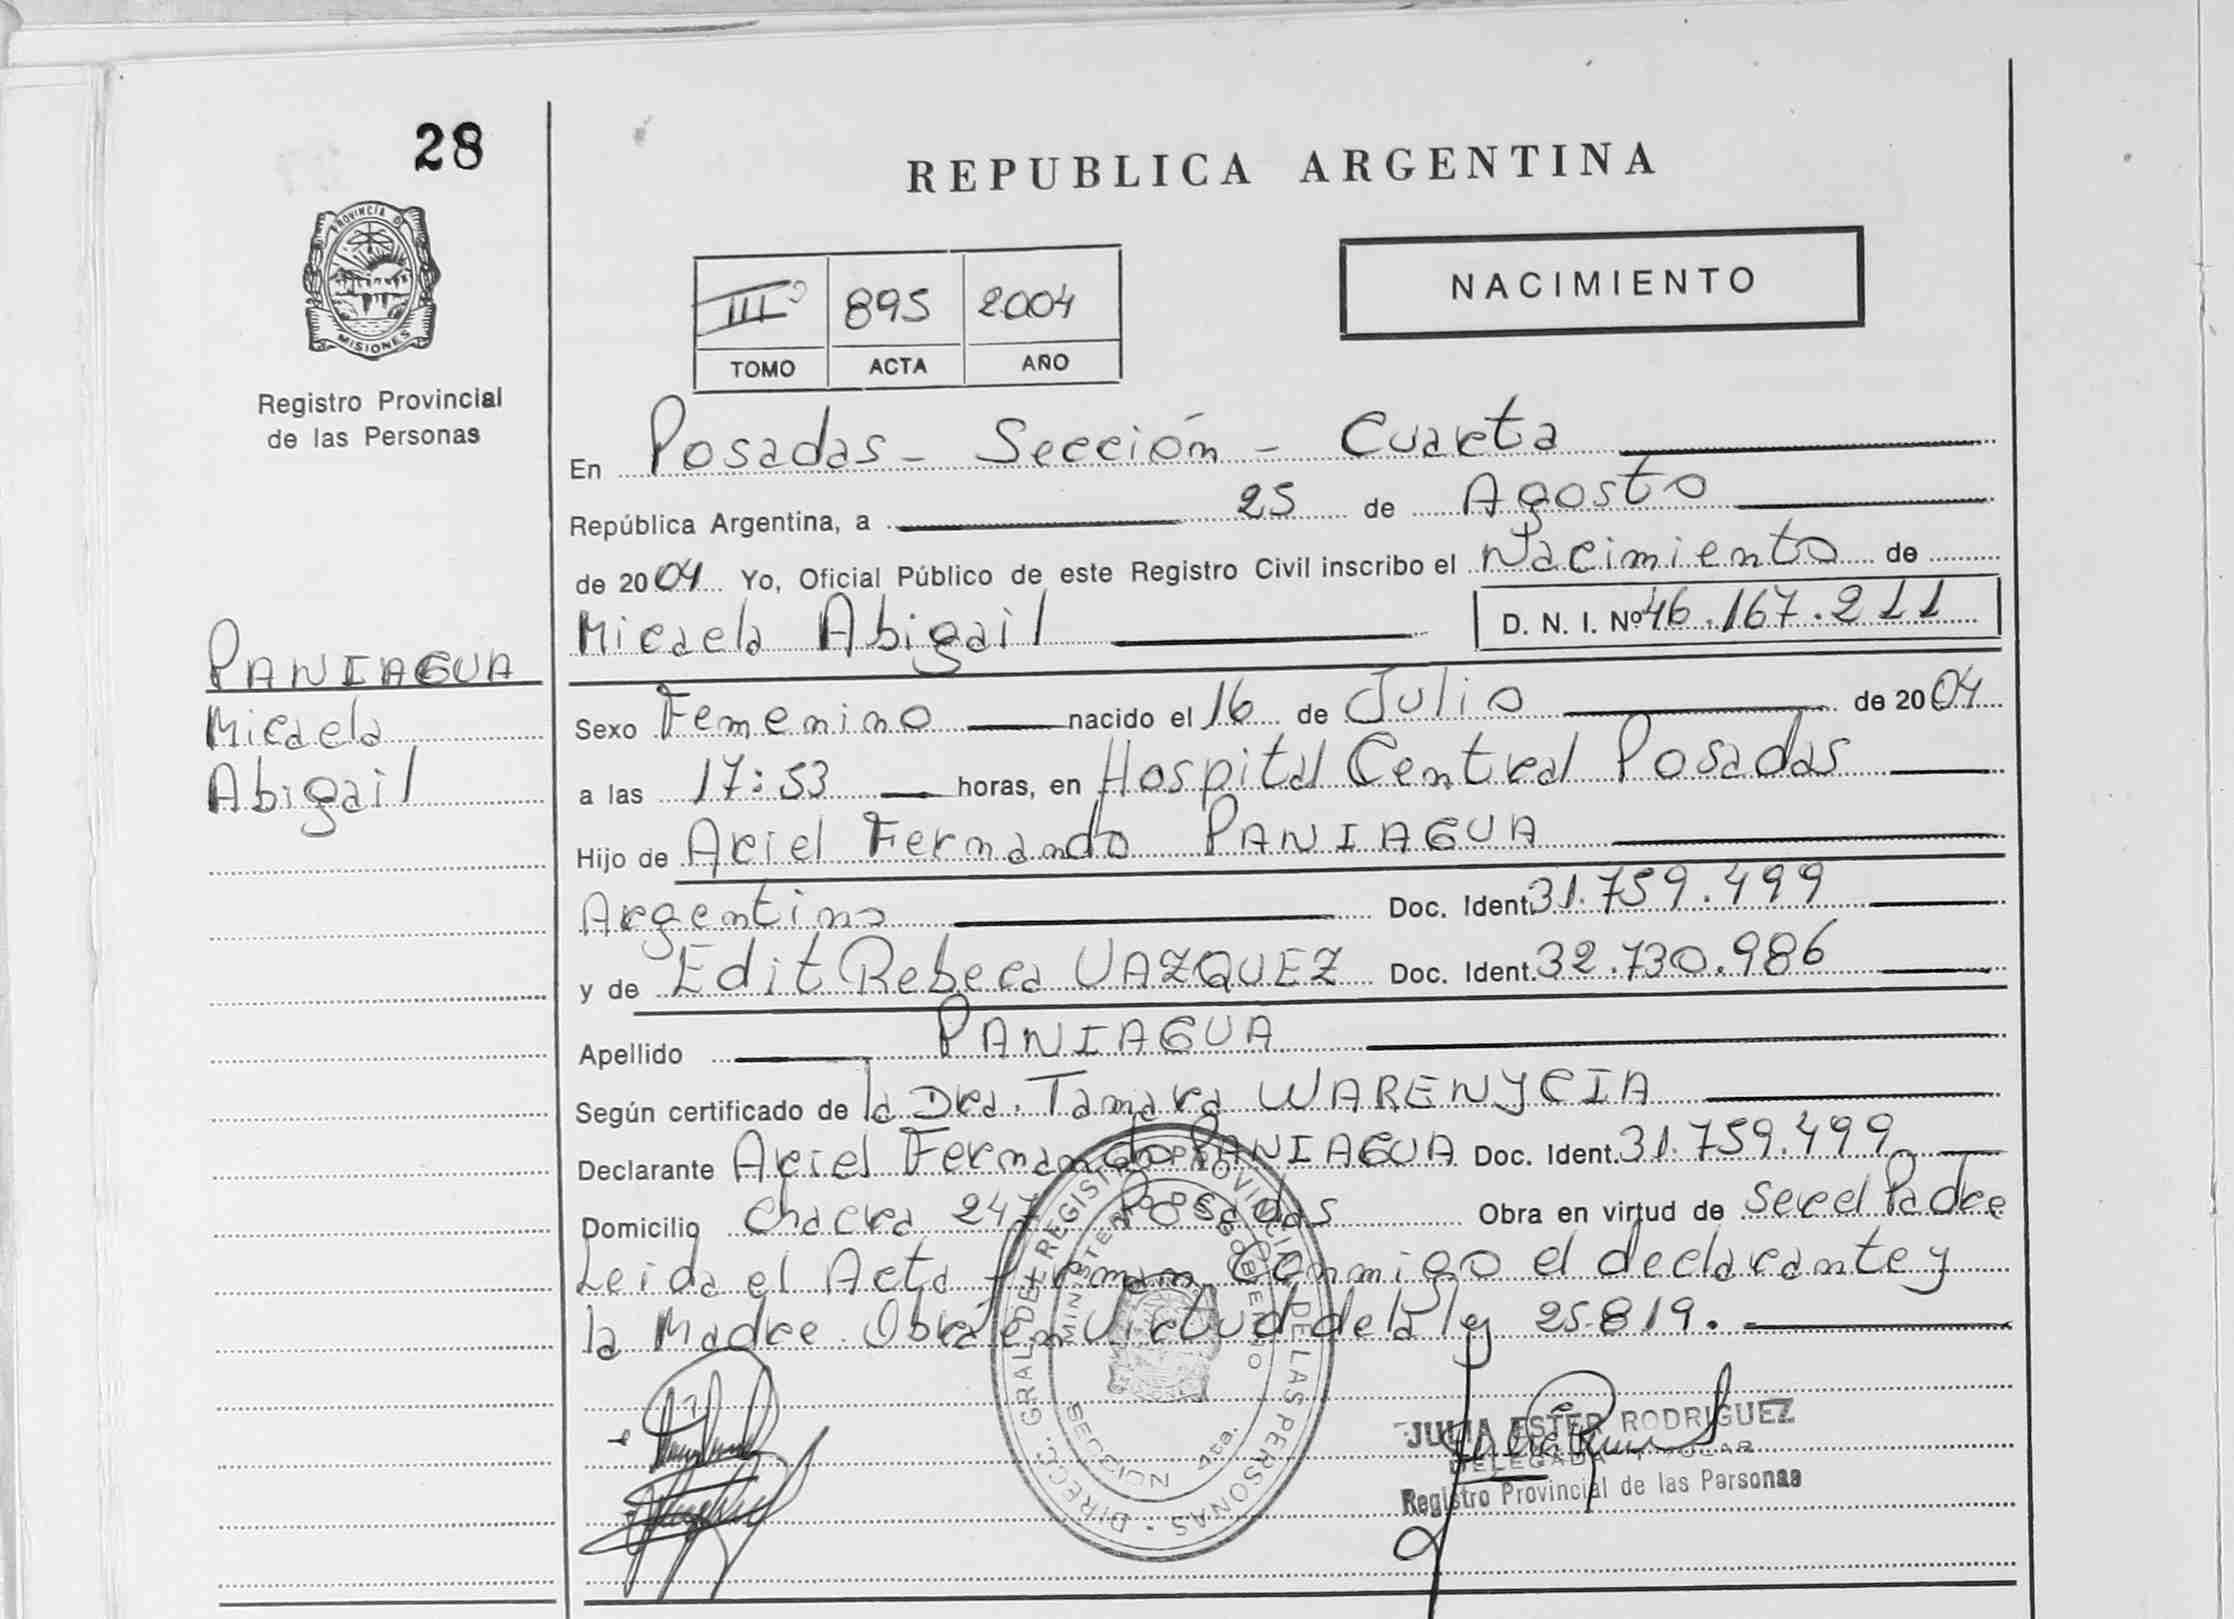 28
REPUBLICA ARGENTINA
PROVINCIA D
MISIONES
Registro Provincial
de las Personas
NACIMIENTO
III° 895 2004
TOMO ACTA AÑO
En Posadas - Sección - Cuarta
República Argentina, a 25 de Agosto
de 2004 Yo, Oficial Público de este Registro Civil inscribo el Nacimiento de
Micaela Abigail D. N. I. Nº 46.167.211
PANIAGUA
Micaela
Abigail
Sexo Femenino nacido el 16 de Julio de 2004
a las 17:53 horas, en Hospital Central Posadas
Hijo de Ariel Fernando PANIAGUA
Argentino Doc. Ident. 31.759.499
y de Edit Rebeca VAZQUEZ Doc. Ident. 32.730.986
Apellido PANIAGUA
Según certificado de la Dra. Tamara WARENYCIA
Declarante Ariel Fernando PANIAGUA Doc. Ident. 31.759.499
Domicilio Chacra 247 Posadas Obra en virtud de ser el Padre
Leida el Acta firman Conmigo el declarante y
la Madre. Obra en Virtud de la ley 25.819.
DIRECC. GRAL. DEL REGISTRO PROVINCIAL DE LAS PERSONAS
MINISTERIO DE GOBIERNO
SECCION 4ta.
JULIA ESTER RODRIGUEZ
DELEGADA TITULAR
Registro Provincial de las Personas